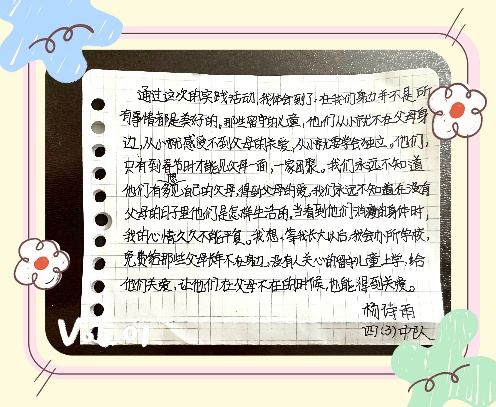 通过这次的实践活动,我体会到了:在我们身边并不是所
有事情都是美好的。那些留守的儿童,他们从小就不在父母身
边,从小就感受不到父母的关爱,从小就要学会独立。他们,
只有到春节时才能见父母一面,一家团聚。我们永远不知道
他们有多想自己的父母,得到父母的爱。我们永远不知道在没有
父母的日子里他们是怎样生活的。当看到他们瘦的身体时,
我的心情久久不能平复。我想,等我长大以后,我会办所学校,
免费给那些父母不在身边,没有人关心的留守儿童上学,给
他们关爱,让他们在父母不在的时候,也能得到关爱。
杨诗雨
四(3)中队